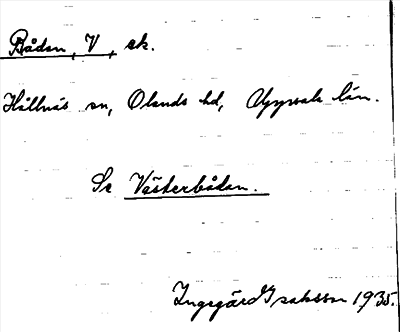 Bådan, V, sk.
Hållnäs sn, Olands hd, Uppsala län.
Se Västerbådan.
Ingegärd Isaksson 1935.